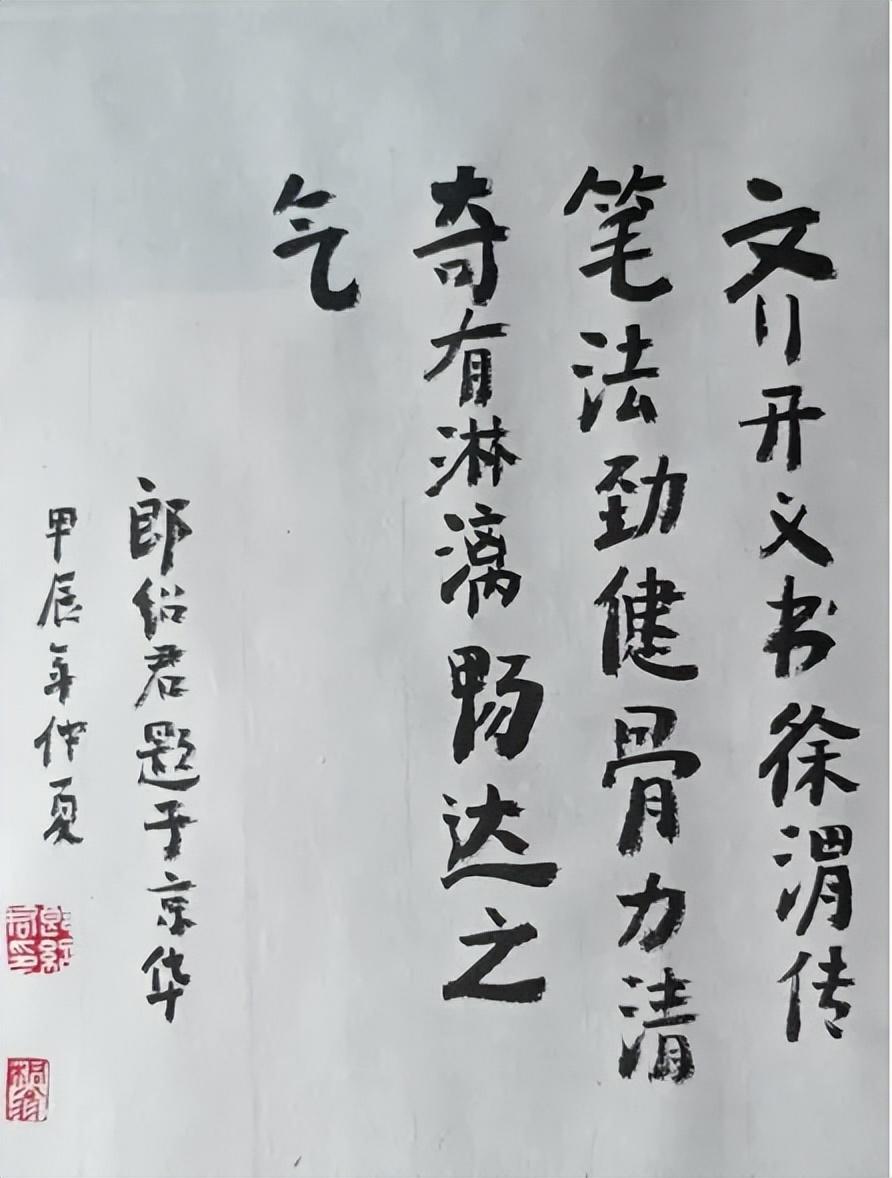 齐开义书徐渭传
笔法劲健骨力清
奇有淋漓畅达之
气
郎绍君题于京华
甲辰年仲夏
郎绍君印
桐翁